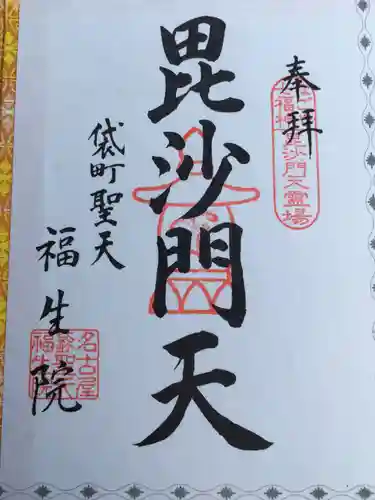 奉拝
七福神毘沙門天霊場
毘沙門天
袋町聖天
福生院
名古屋
福生院